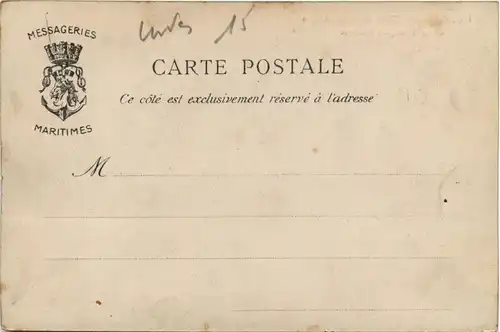 Indes 15
MESSAGERIES
MARITIMES
CARTE POSTALE
Ce côté est exclusivement réservé à l'adresse
M